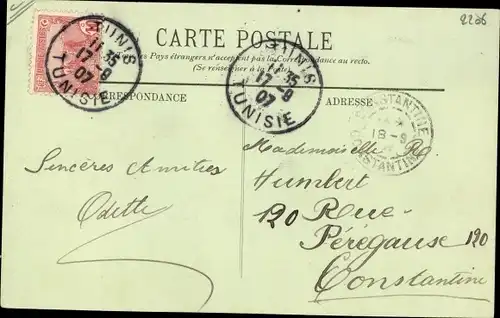 2236
CARTE POSTALE
Pays étrangers n'acceptent pas la Correspondance au recto.
(Se renseigner à la
TUNIS
11 35
17-9
07
TUNISIE
TUNIS
11 35
17-9
07
TUNISIE
RESPONDANCE
ADRESSE
CONSTANTINE
18-9
CONSTANTINE
Mademoiselle R.
Humbert
120 Rue
Pérégause 120
Constantine
Sincères Amitiés
Odette